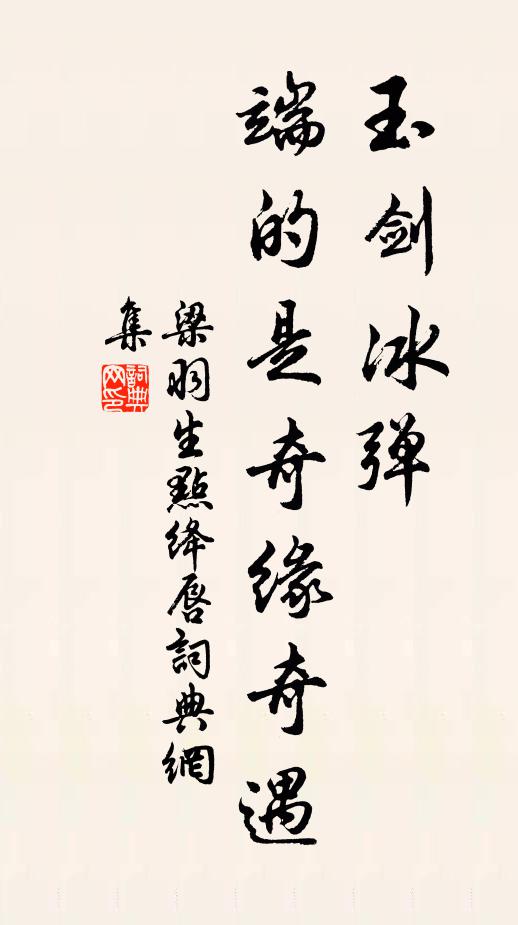 玉剑冰弹
端的是奇缘奇遇
梁羽生點绛唇詞典網
集
詞典
网印